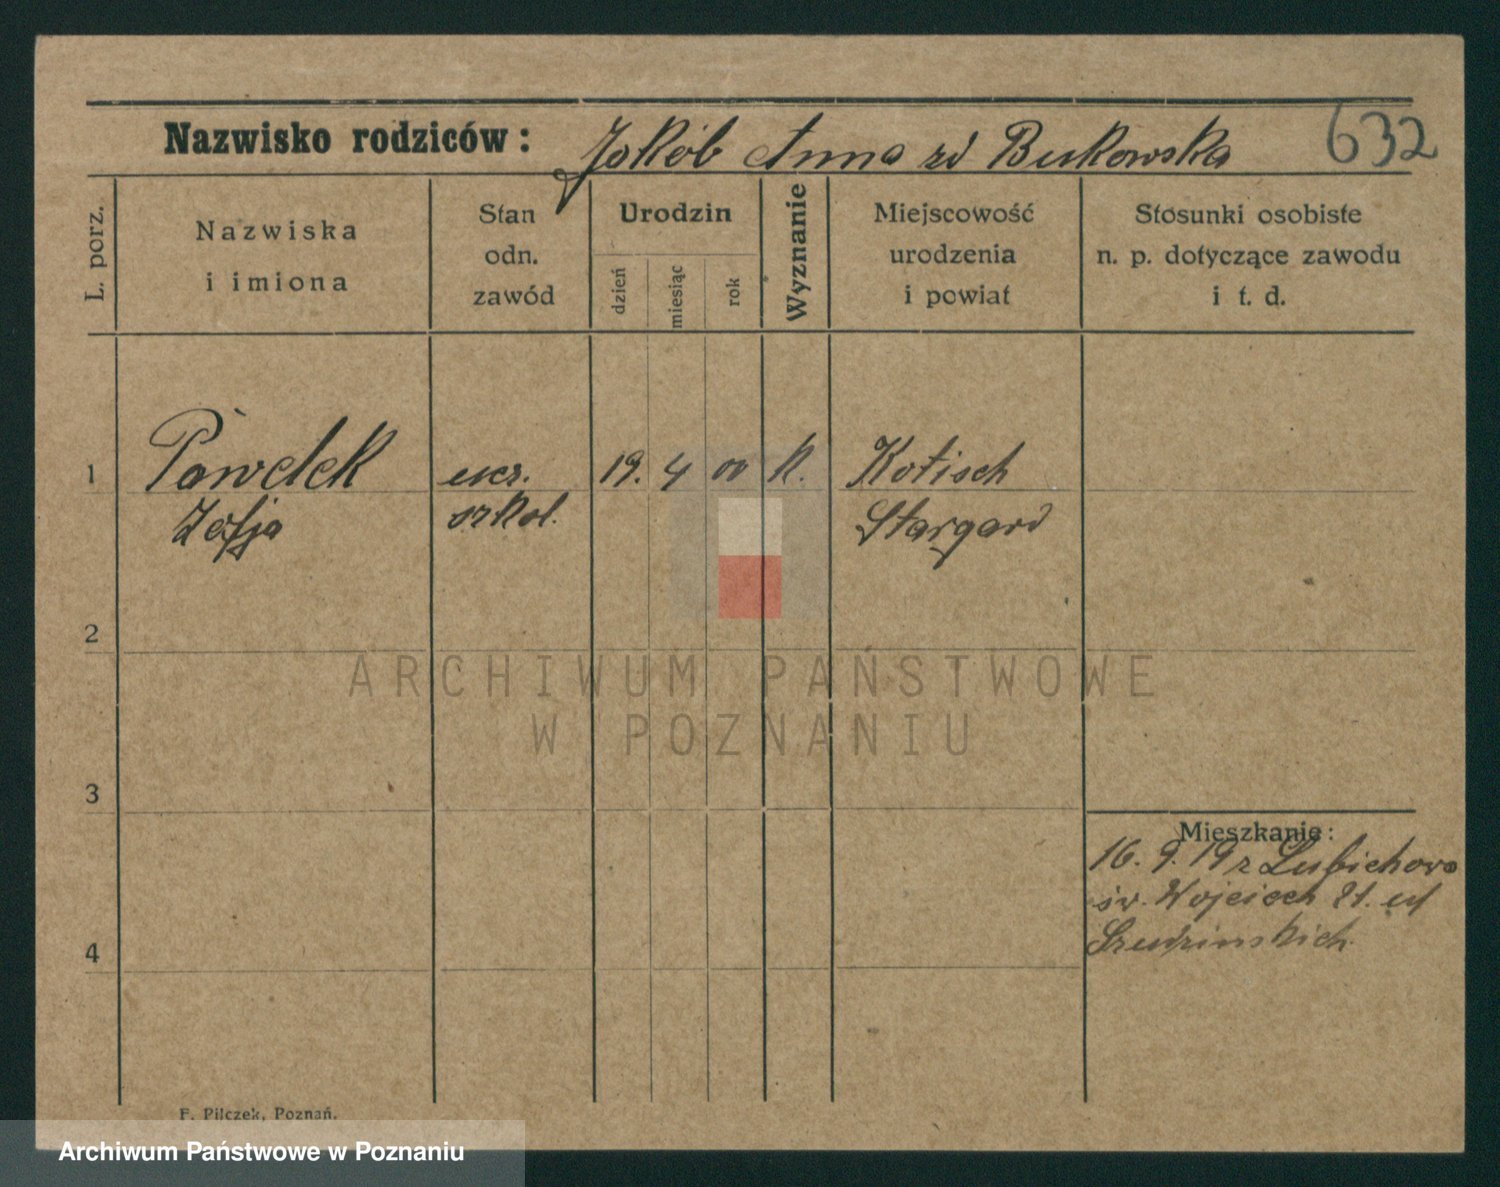 632
Nazwisko rodziców: Jakób Anna zd Bukowska
L. porz.
Nazwiska
i imiona
Stan
odn.
zawód
Urodzin
dzień
miesiąc
rok
Wyznanie
Miejscowość
urodzenia
i powiat
Stosunki osobiste
n. p. dotyczące zawodu
i t. d.
1 Pawelek ucz. 19. 4 00 K. Kotisch
Zofja szkol. Stargard
2
ARCHIWUM PAŃSTWOWE
W POZNANIU
3
Mieszkanie:
16. 9. 19 z Lubichowo
św. Wojciech 21. u
4
F. Pilczek, Poznań.
Archiwum Państwowe w Poznaniu